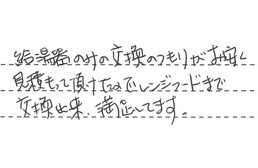 給湯器のみの交換のつもりがお安く
見積もって頂けたのでレンジフードまで
交換出来、満足してます。